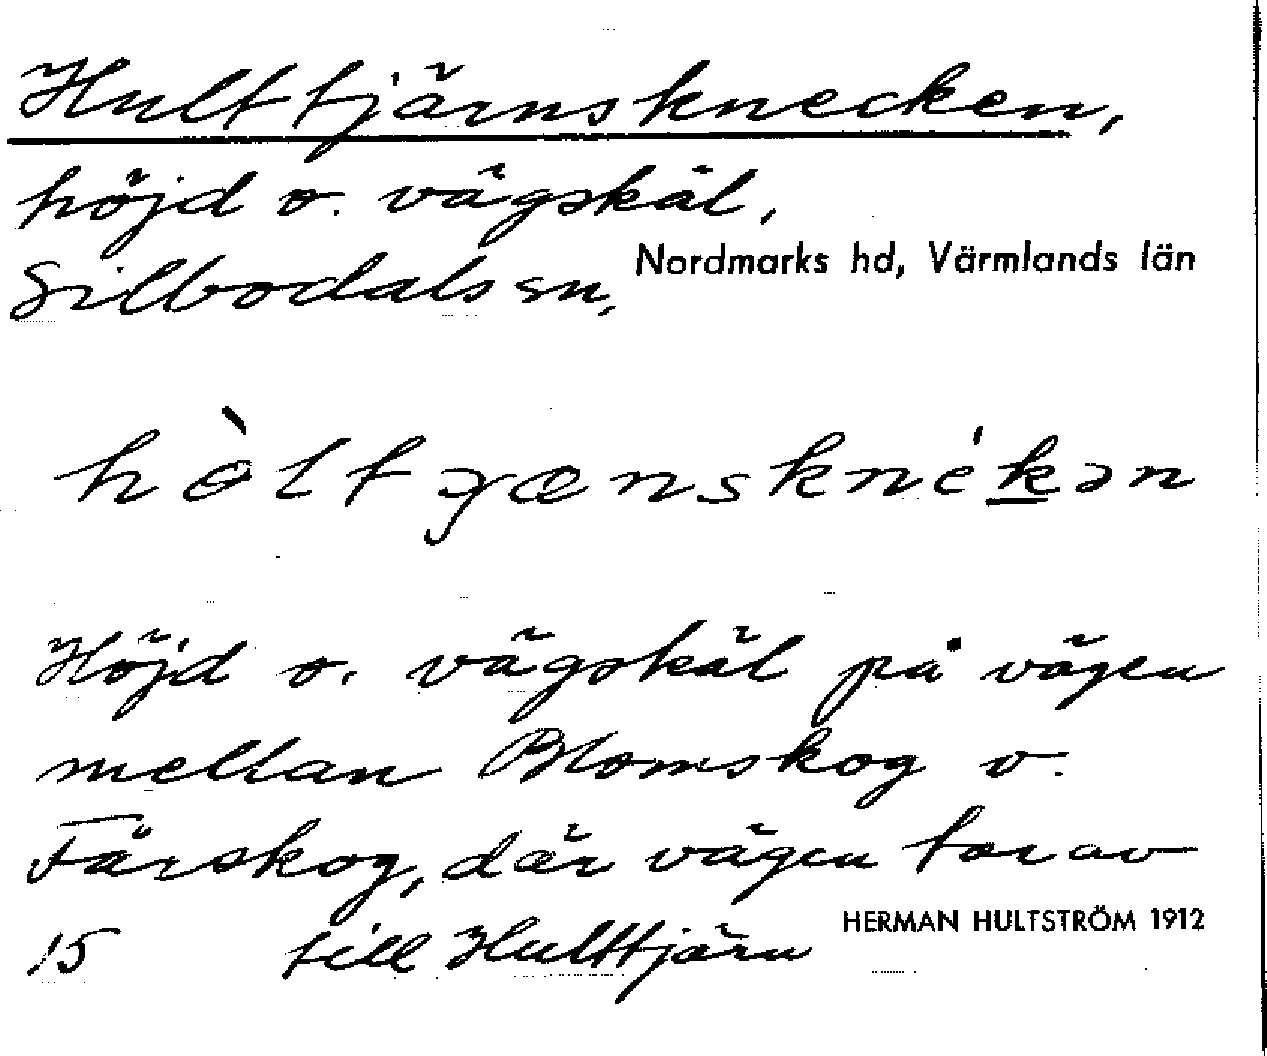 Hulttjärnsknecken,
höjd o. vägskäl,
Silbodals sn, Nordmarks hd, Värmlands län
hòltɟænsknékən
Höjd o. vägskäl på vägen
mellan Blomskog o.
Fårskog, där vägen tar av
15 till Hulttjärn HERMAN HULTSTRÖM 1912